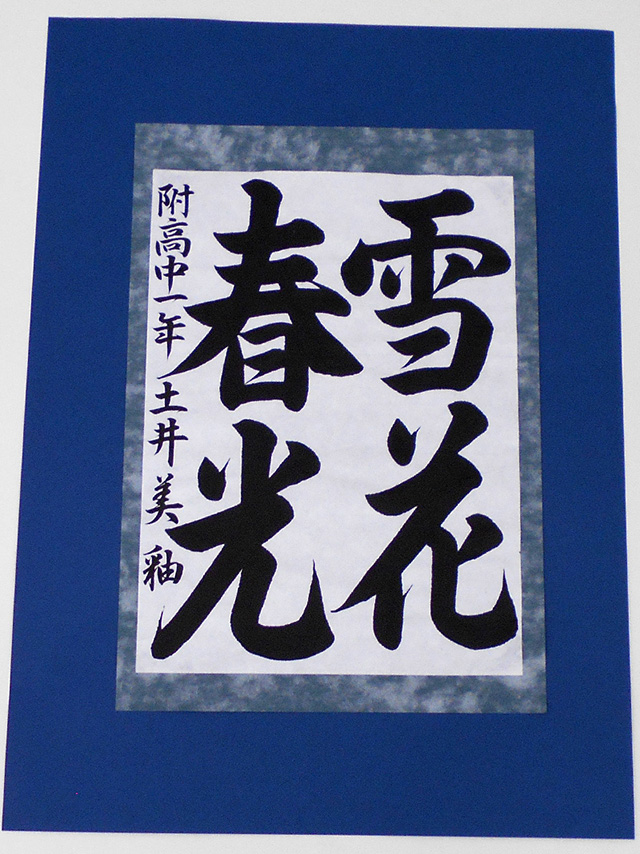 雪花
春光
附高中一年 土井美釉